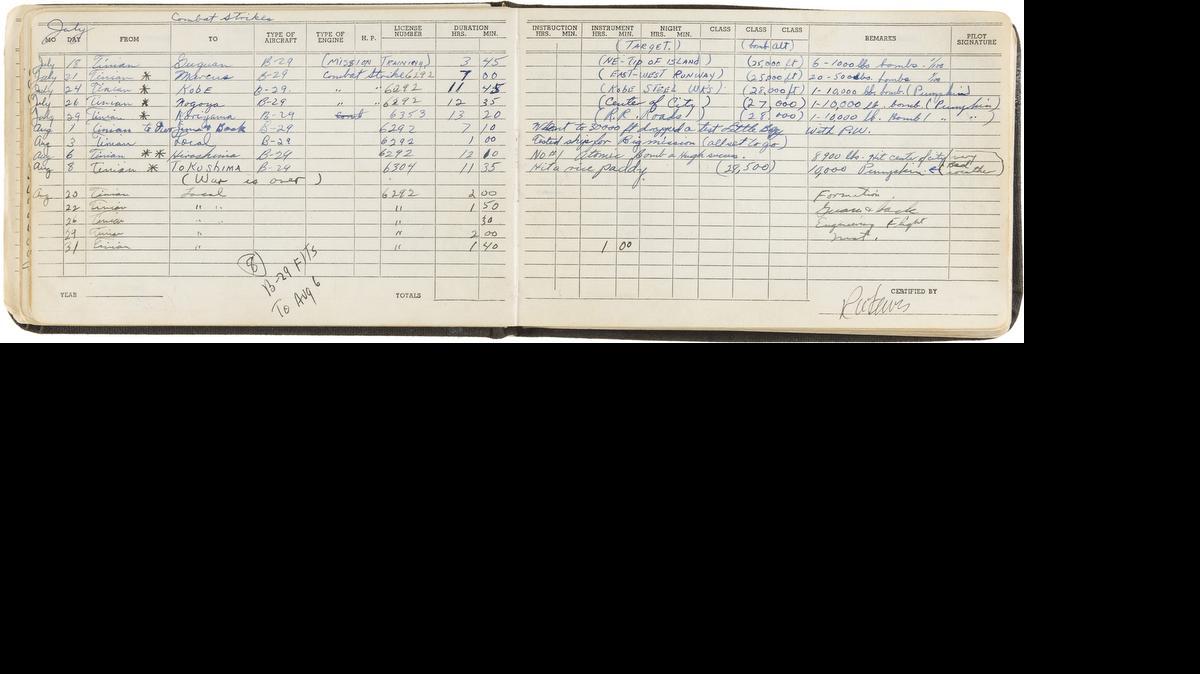 Combat Strikes
July
MO DAY FROM TO TYPE OF AIRCRAFT TYPE OF ENGINE H. P. LICENSE NUMBER DURATION HRS. MIN. INSTRUCTION HRS. MIN. INSTRUMENT HRS. MIN. NIGHT HRS. MIN. CLASS CLASS CLASS REMARKS PILOT SIGNATURE
(TARGET.) (bomb alt)
July 18 Tinian B-29 (MISSION TRAINING) 3 45 (NE-Tip of ISLAND) (25,000 ft) 6-1000 lbs bombs
July 21 Tinian * Marcus B-29 Combat Strike 6292 7 00 (EAST-WEST RUNWAY) (25000 ft) 20-500 lbs. bombs
July 24 Tinian * Kobe B-29. " " 6292 11 45 (KOBE STEEL WKS) (28,000 ft) 1-10,000 lb. bomb. (Pumpkin)
July 26 Tinian * Nogoya B-29 " " 6292 12 35 (Center of City) (27,000) 1-10,000 lb. bomb (Pumpkin)
July 29 Tinian * Koriyama B-29 6353 13 20 (R.R. Roads) (28,000) 1-10000 lb. Bomb ( " " )
Aug 1 Tinian to Iwo Jima & Back B-29 6292 7 10 Went to 30000 ft dropped a test Little Boy with P.W.
Aug 3 Tinian Local B-29 6292 1 00 Tested ships for Big mission (all set to go)
Aug 6 Tinian ** Hiroshima B-29 6292 12 10 No #1 Atomic Bomb a Hugh success. 8900 lbs. Hit center of city (very
Aug 8 Tinian * TOKUSHIMA B-29 6304 11 35 Hit a rice paddy. (28,500) 10,000 Pumpkin bad weather)
(War is over)
Aug 20 Tinian Local 6292 2 00 Formation
22 Tinian " " " 1 50 Guam & back
26 Tinian " 30 Engineering Flight
29 Tinian " " 2 00
31 Tinian " " 1 40 1 00
(8) B-29 Flts To Aug 6
YEAR TOTALS CERTIFIED BY